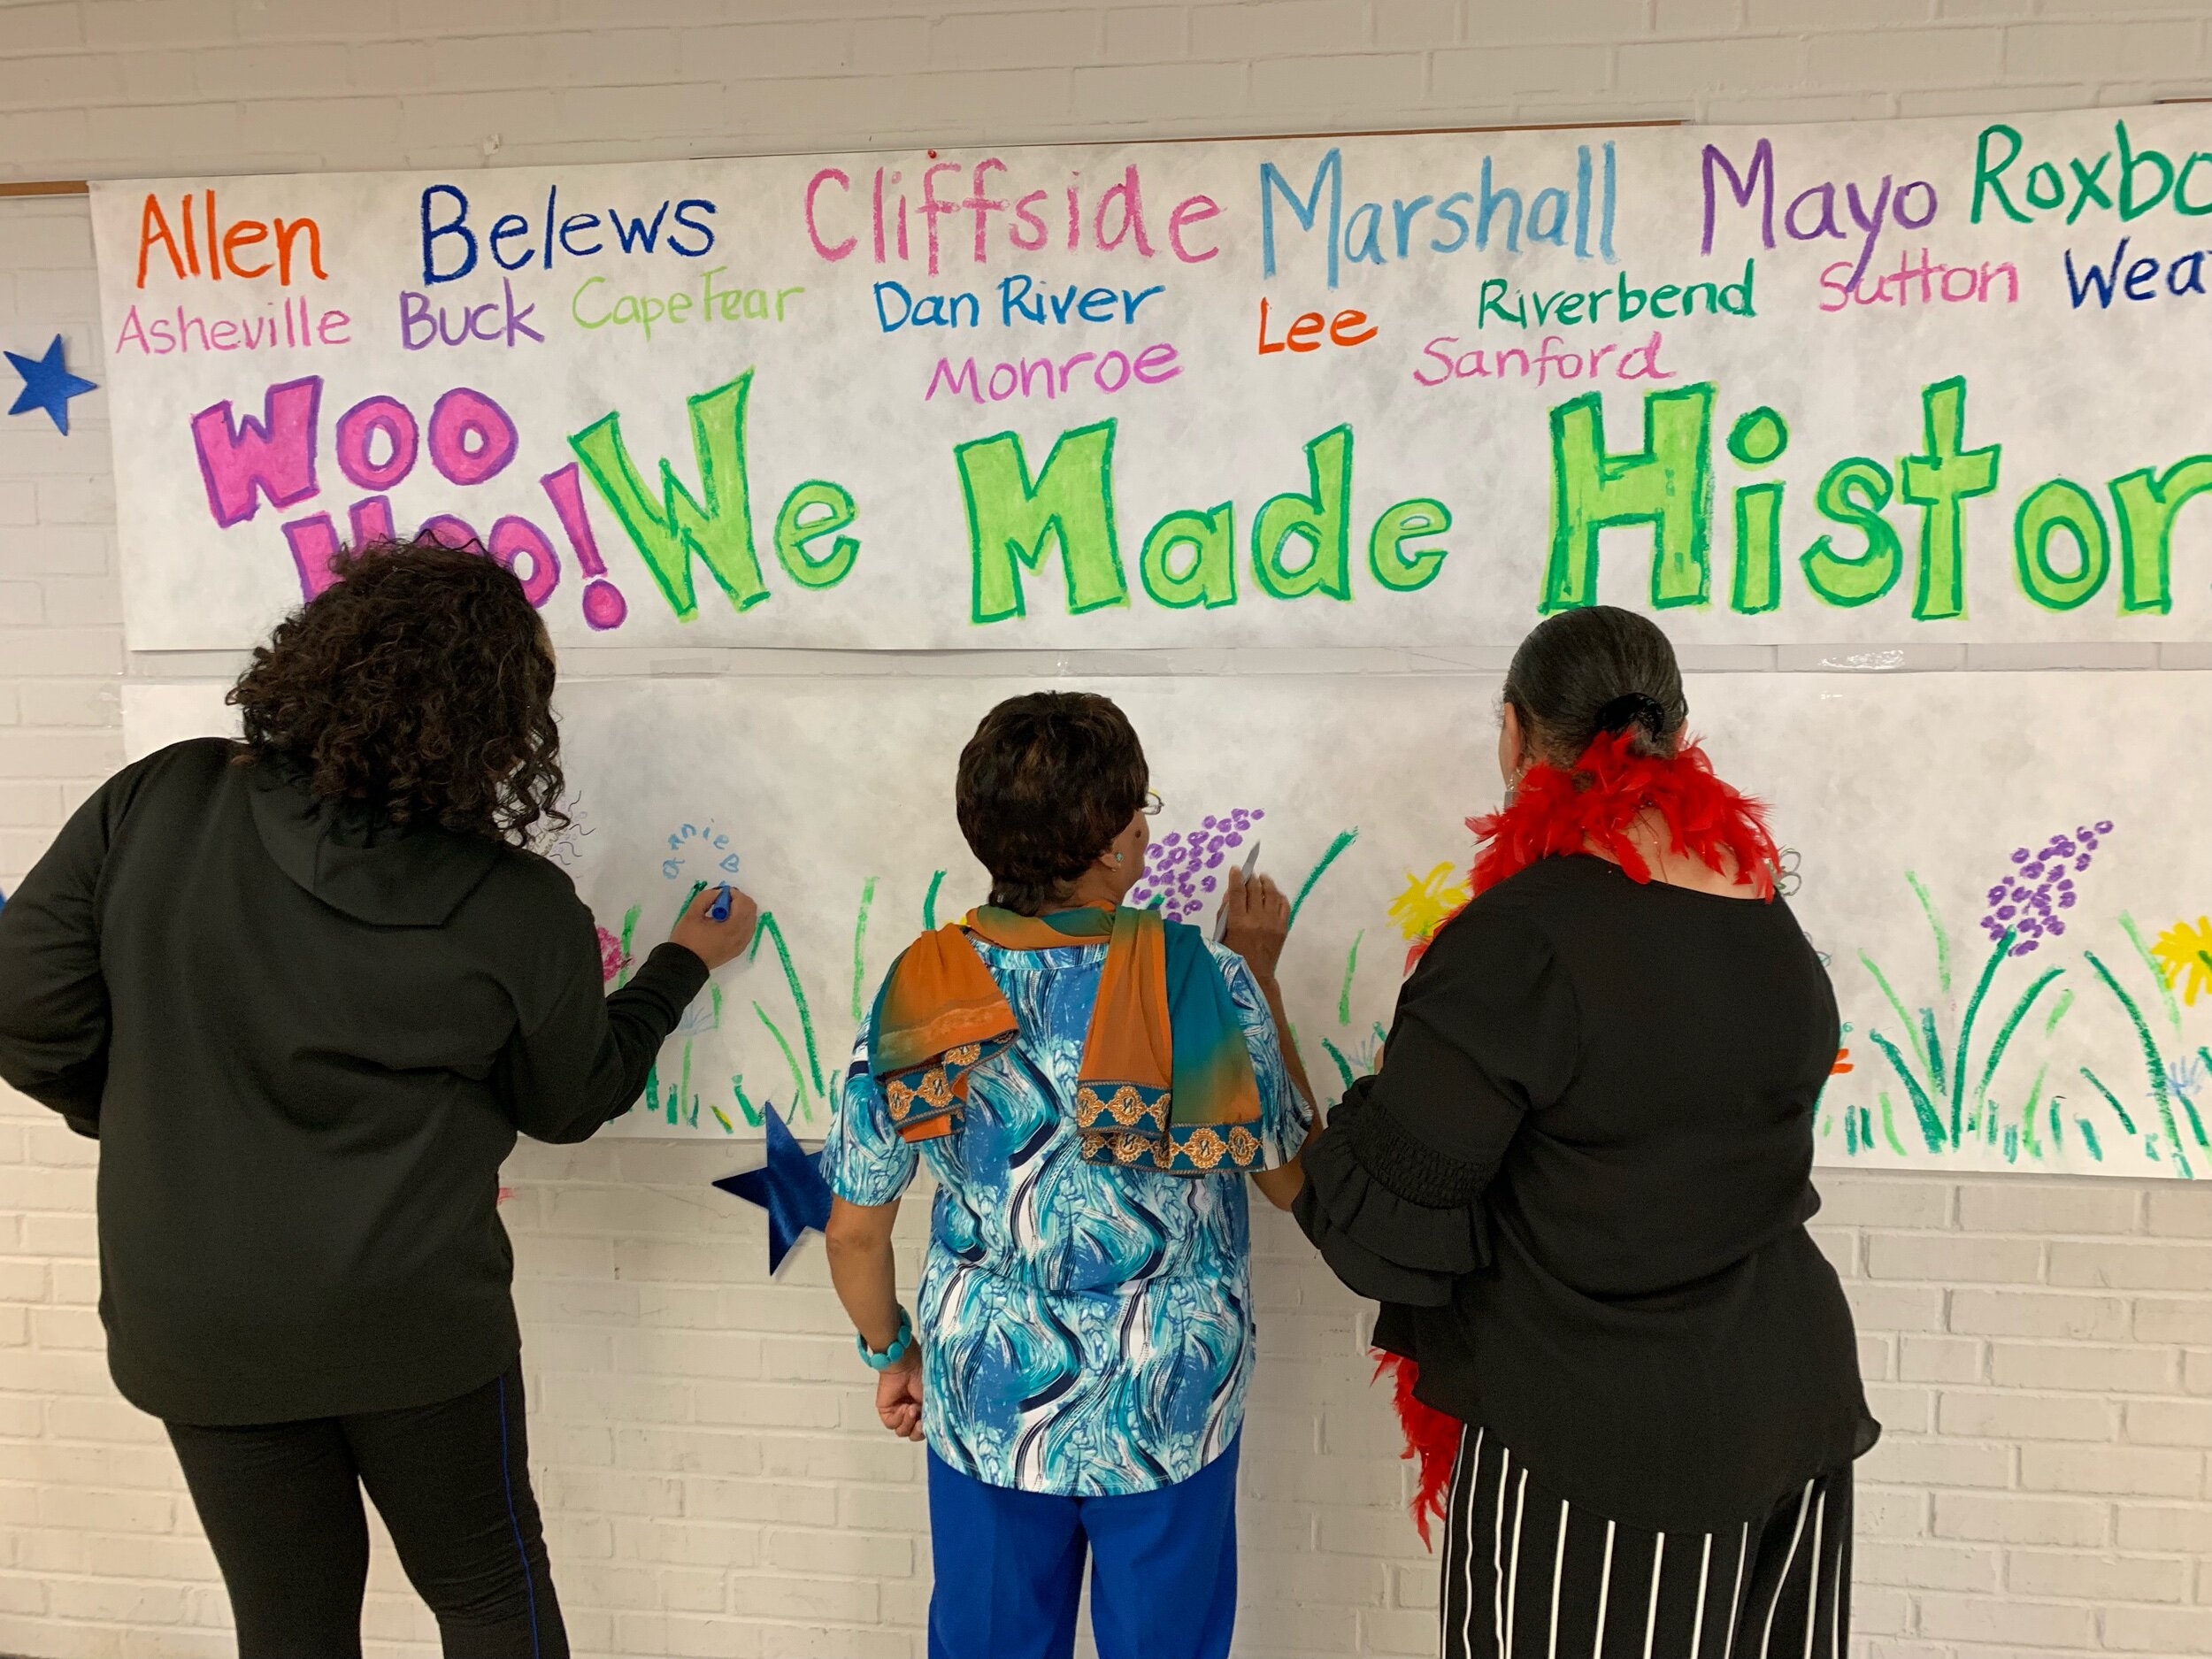 Allen Belews Cliffside Marshall Mayo Roxbo
Asheville Buck Cape Fear Dan River Lee Riverbend Sutton Wea
Monroe Sanford
Woo Hoo! We Made Histor
annie B